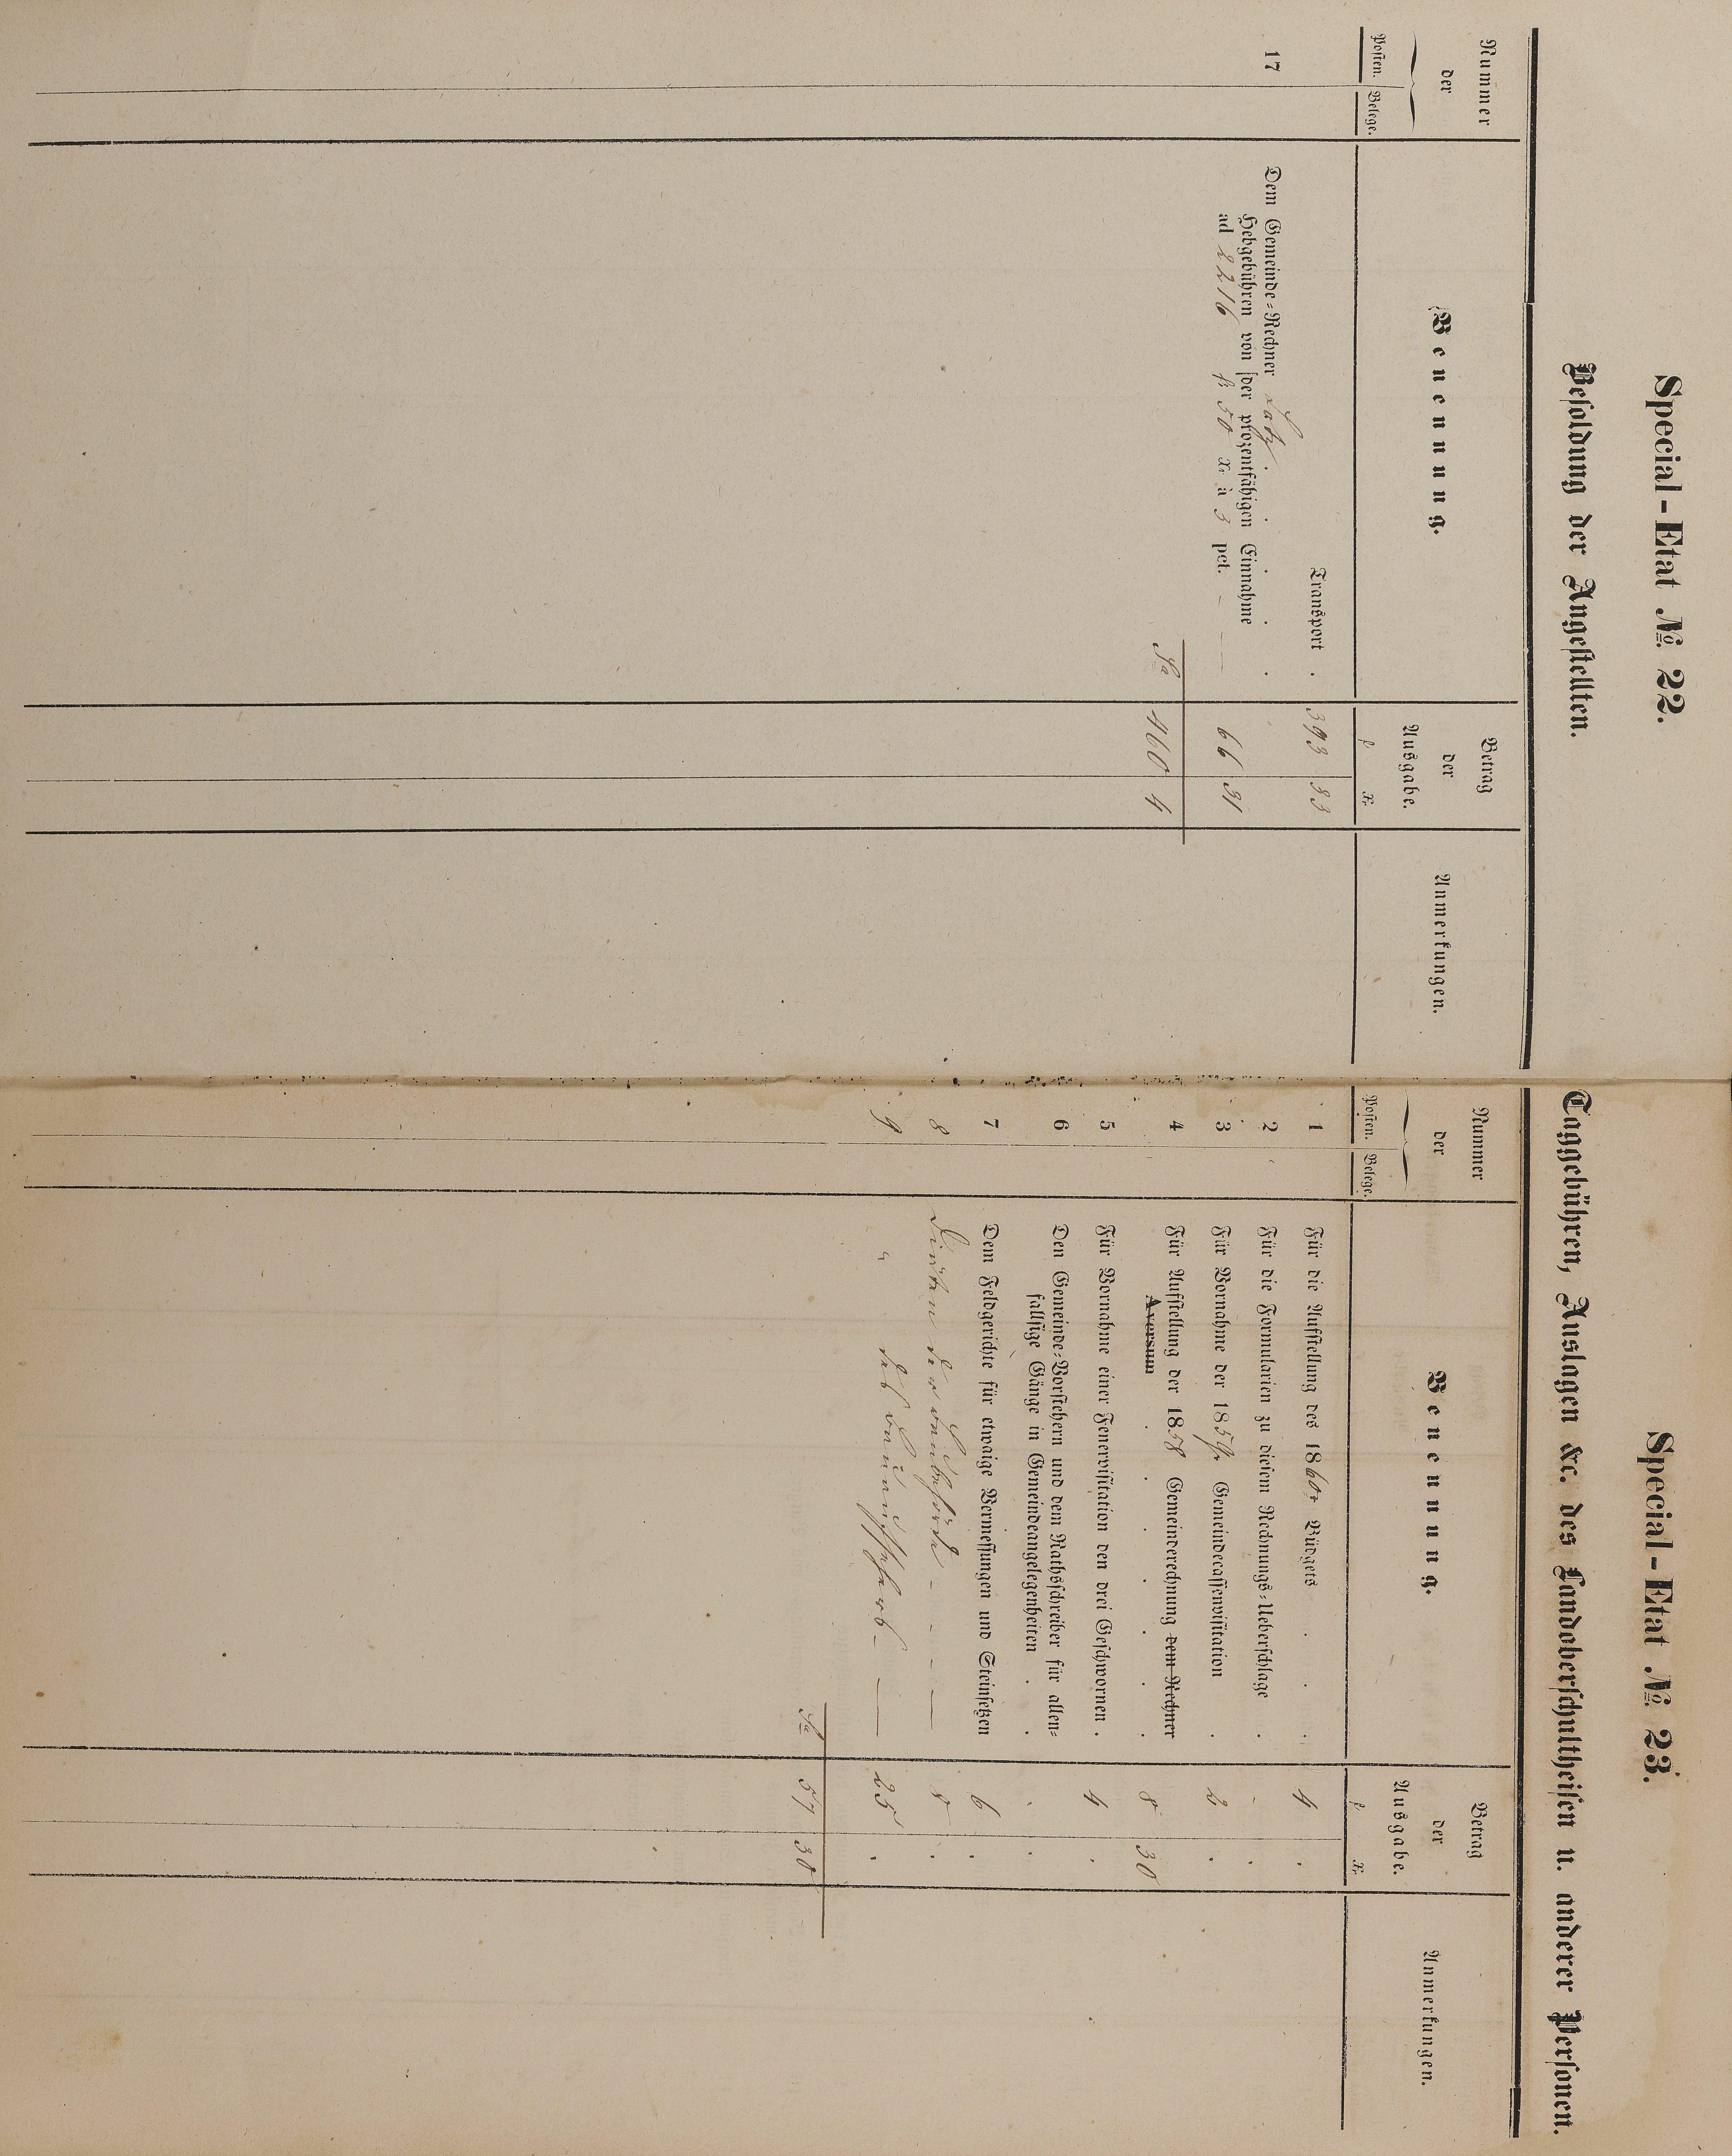 Special-Etat № 22.
Besoldung der Angestellten.
Nummer
der
Posten. Belege.
Benennung.
Betrag
der
Ausgabe.
f x.
Anmerkungen.
Transport . 393 33
17 Dem Gemeinde-Rechner . . . .
Hebgebühren von der prozentfähigen Einnahme
ad 2216 fl 50 x. à 3 pct. - — 66 31
Sa 460 4
Special-Etat № 23.
Taggebühren, Auslagen &c. des Landoberschultheisen u. anderer Personen.
Nummer
der
Posten. Belege.
Benennung.
Betrag
der
Ausgabe.
f x.
Anmerkungen.
1 Für die Aufstellung des 1860r Büdgets . . . 4 .
2 Für die Formularien zu diesem Rechnungs-Ueberschlage . . .
3 Für Vornahme der 1859r Gemeindecassenvisitation . 2 .
4 Für Aufstellung der 1858 Gemeinderechnung dem Rechner
Aversum . . . . . . . 8 30
5 Für Vornahme einer Feuervisitation den drei Geschwornen . 4 .
6 Den Gemeinde-Vorstehern und dem Rathsschreiber für allen-
fallsige Gänge in Gemeindeangelegenheiten . . . .
7 Dem Feldgerichte für etwaige Vermessungen und Steinsetzen 6 .
8 Diäten der Baubehörde - - - — 8 .
9 " des Bauaufsehers - — — 25 .
Sa 57 30